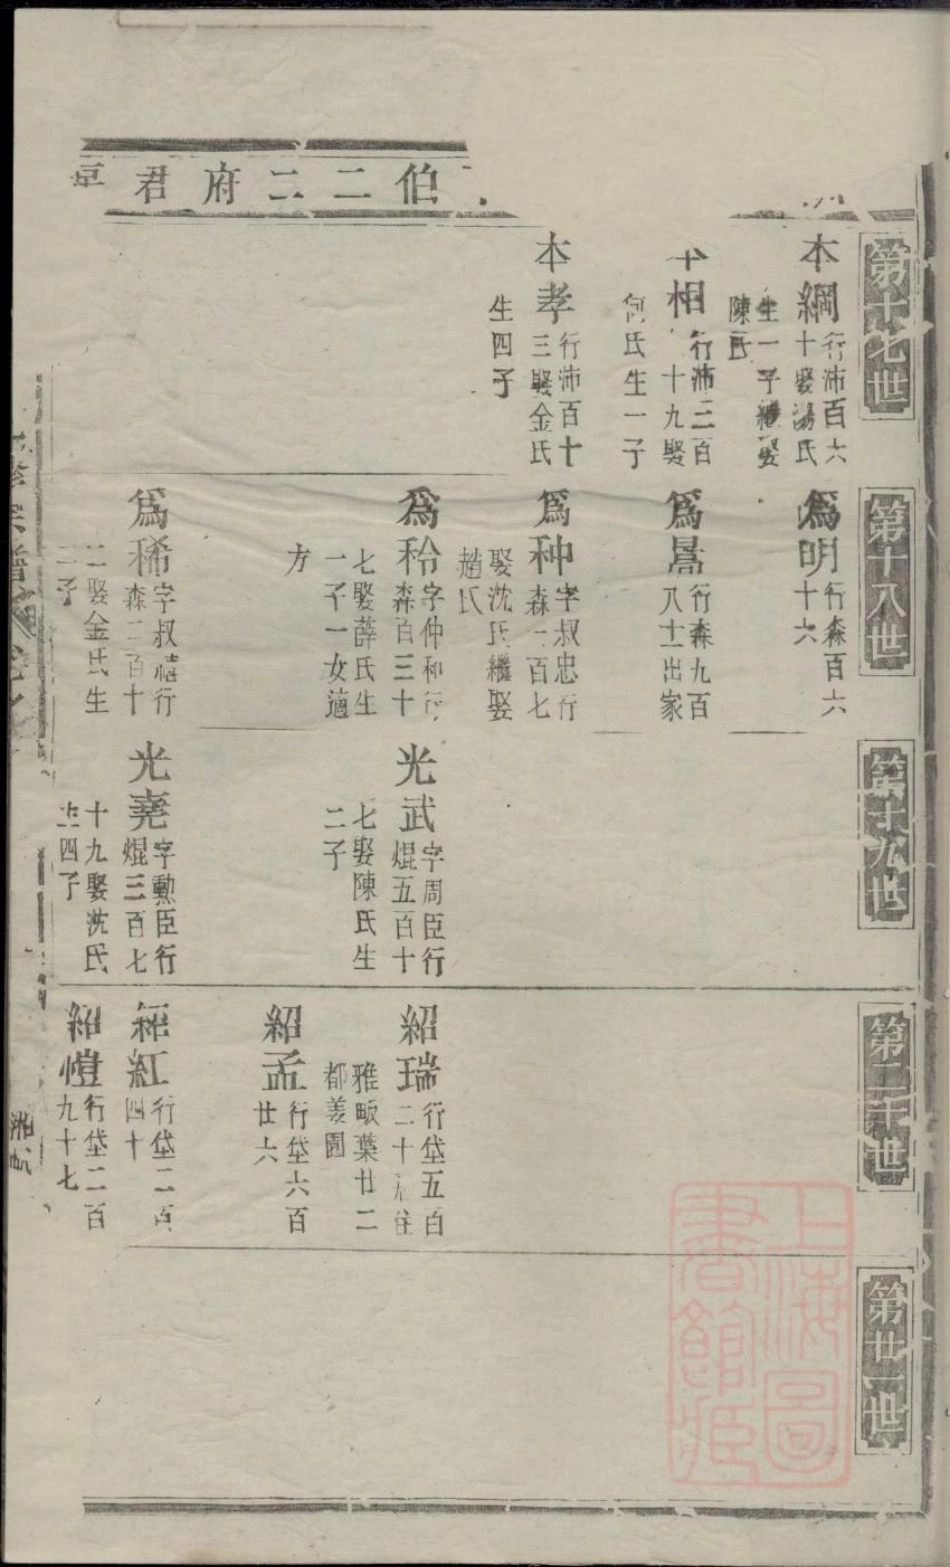 伯二二府君
第十七世
本綱 行沛百六
十娶湯氏
生一子繼娶
陳氏
相 行沛三百
十九娶
何氏生一子
本孝 行沛百十
三娶金氏
生四子
第十八世
爲明 行森百六
十六
爲暠 行森九百
八十出家
爲种 字叔忠行
森一百七
娶沈氏繼娶
趙氏
爲秢 字仲和行
森百三十
七娶薛氏生
一子一女適
方
爲稀 字叔禧行
森二百十
二娶金氏生
二子
第十九世
光武 字周臣行
焜五百十
七娶陳氏生
二子
光堯 字勲臣行
焜三百七
十九娶沈氏
生四子
第二十世
紹瑞 行垡五百
二十居住
雅畈葉廿二
都義圖
紹孟 行垡六百
廿六
紹紅 行垡二百
四十
紹愷 行垡二百
九十七
第廿一世
上海圖
書館藏